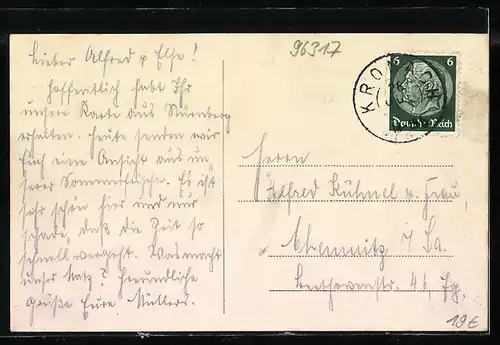 Lieber Alfred u Else!
Hoffentlich habt Ihr
unsere Karte aus Nürnberg
erhalten. Heute senden wir
Euch eine Ansicht aus un-
serer Sommerfrische. Es ist
sehr schön hier und nur
schade, daß die Zeit so
schnell vergeht. Was macht
unser Matz? Freundliche
Grüße Eure Müllers.
96317
KRO
6 6
Deutsches Reich
Herrn
Alfred Kühnel u. Frau,
Chemnitz i/ Sa.
Beethovenstr. 46, Ig.
19€